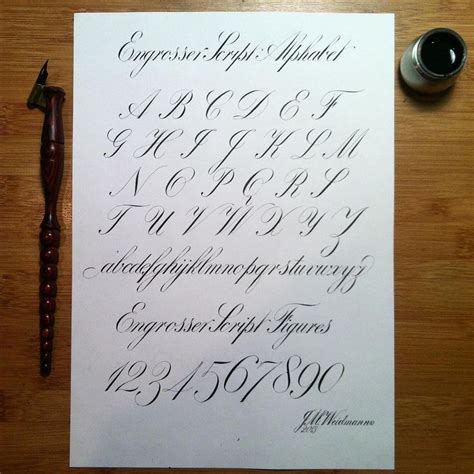 Engrosser Script Alphabet
A B C D E F
G H I J K L M
N O P Q R S
T U V W X Y Z
abcdefghijklmnopqrstuvwxyz
Engrosser Script Figures
1234567890
J.M.Weidmann©